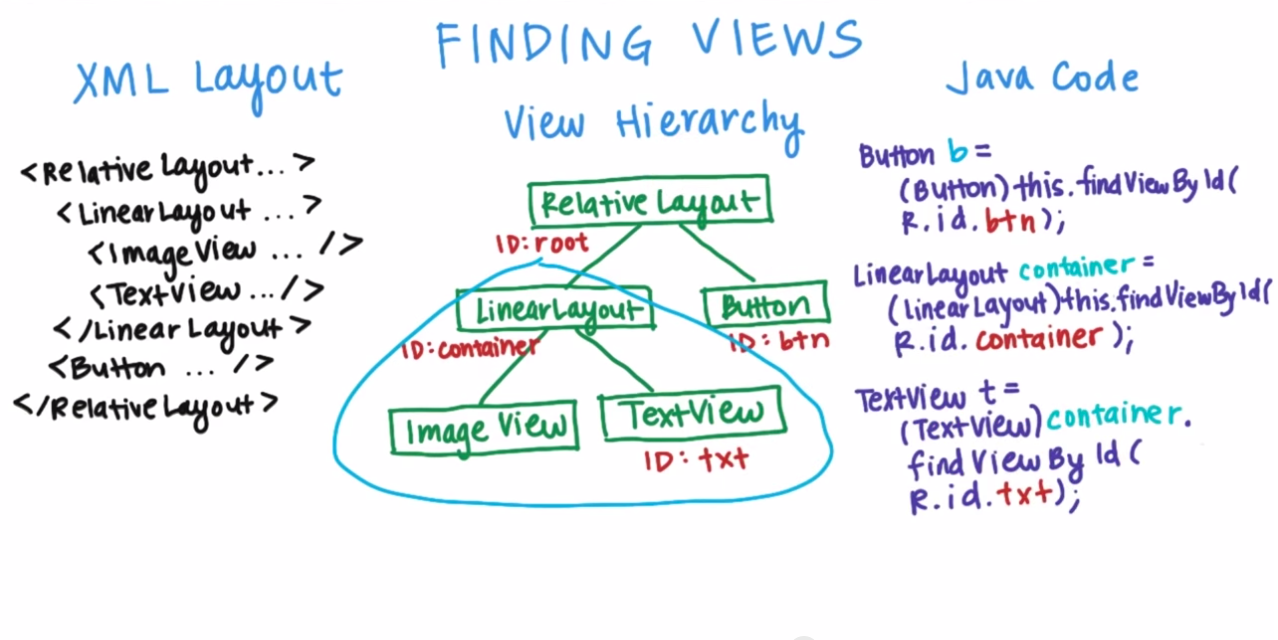 FINDING VIEWS
XML Layout
<Relative Layout...>
<LinearLayout ...>
<ImageView ... />
<TextView .../>
</Linear Layout>
<Button ... />
</Relative Layout>
View Hierarchy
Relative Layout
ID: root
LinearLayout
ID: container
Button
ID: btn
Image View
TextView
ID: txt
Java Code
Button b =
(Button) this.findViewById(
R.id.btn);
LinearLayout container =
(linearLayout) this.findViewById(
R.id.container);
TextView t =
(TextView) container.
findViewById(
R.id.txt);